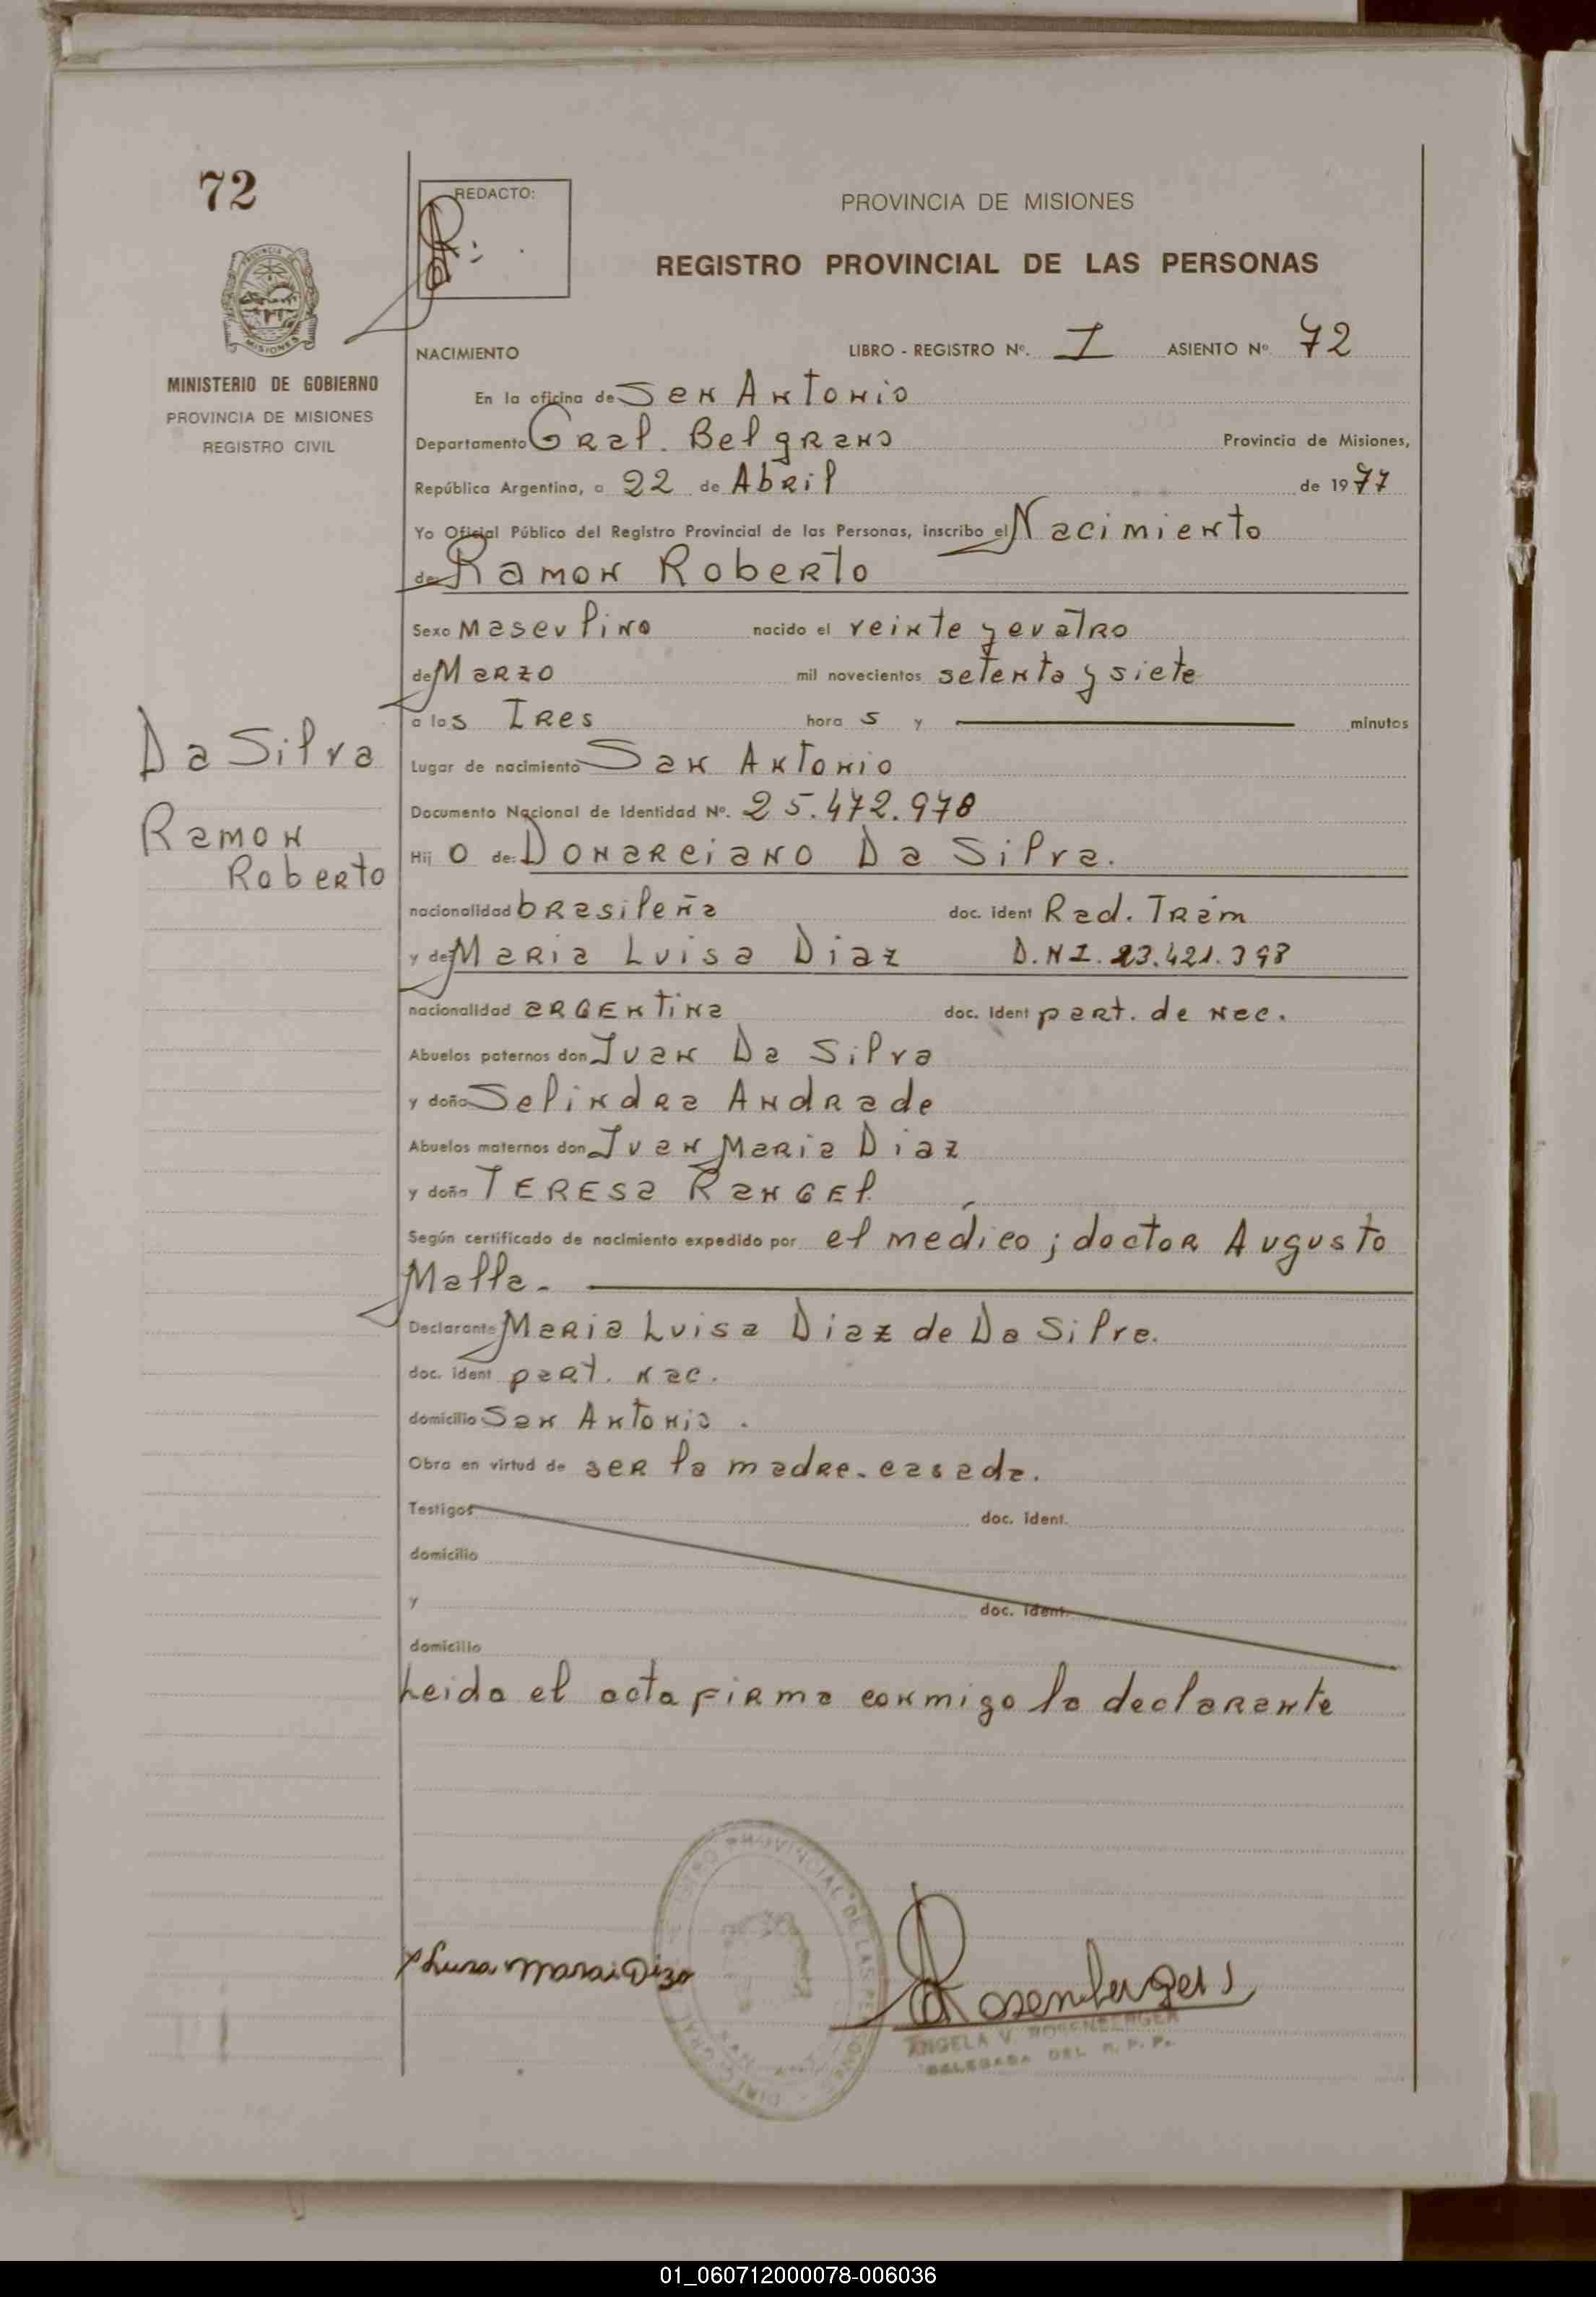 72
REDACTO:
PROVINCIA DE MISIONES
REGISTRO PROVINCIAL DE LAS PERSONAS
MINISTERIO DE GOBIERNO
PROVINCIA DE MISIONES
REGISTRO CIVIL
NACIMIENTO LIBRO - REGISTRO Nº. I ASIENTO Nº 72
En la oficina de San Antonio
Departamento Gral. Belgrano Provincia de Misiones,
República Argentina, a 22 de Abril de 1977
Yo Oficial Público del Registro Provincial de las Personas, inscribo el Nacimiento
de Ramon Roberto
Sexo masculino nacido el veinte y cuatro
de Marzo mil novecientos setenta y siete
a las Tres hora s y minutos
Da Silva
Ramon
Roberto
Lugar de nacimiento San Antonio
Documento Nacional de Identidad Nº. 25.472.978
Hij o de: Donarciano Da Silva.
nacionalidad brasileña doc. ident Rad. Tram
y de Maria Luisa Diaz D.N.I. 23.421.398
nacionalidad argentina doc. ident part. de nac.
Abuelos paternos don Juan Da Silva
y doña Selindra Andrade
Abuelos maternos don Juan Maria Diaz
y doña Teresa Rangel.
Según certificado de nacimiento expedido por el medico; doctor Augusto
Malla.
Declarante Maria Luisa Diaz de Da Silva.
doc. ident part. nac.
domicilio San Antonio.
Obra en virtud de ser la madre. casada.
Testigos doc. ident.
domicilio
y doc. ident.
domicilio
Leida el acta firma conmigo la declarante
Rosenberger
ANGELA V. ROSENBERGER
DELEGADA DEL R. P. P.
01_060712000078-006036